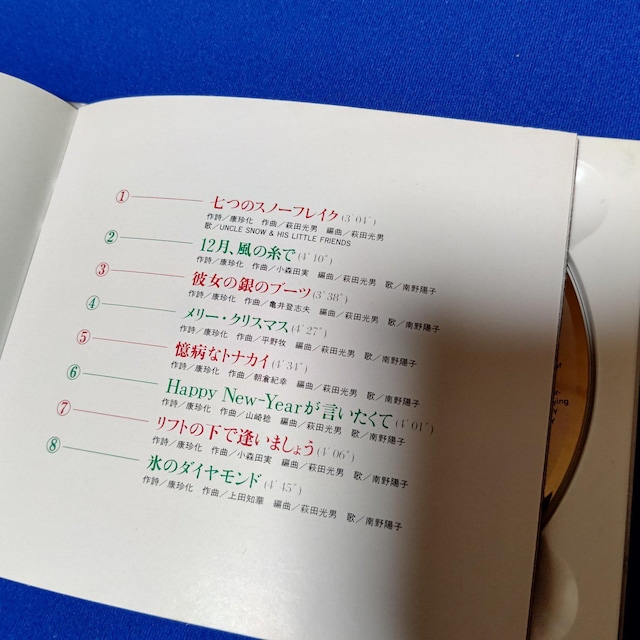 ① 七つのスノーフレイク(3'04")
作詩／康珍化 作曲／萩田光男 編曲／萩田光男
歌／UNCLE SNOW & HIS LITTLE FRIENDS
② 12月、風の糸で(4'10")
作詩／康珍化 作曲／小森田実 編曲／萩田光男 歌／南野陽子
③ 彼女の銀のブーツ(3'38")
作詩／康珍化 作曲／亀井登志夫 編曲／萩田光男 歌／南野陽子
④ メリー・クリスマス(4'27")
作詩／康珍化 作曲／平野牧 編曲／萩田光男 歌／南野陽子
⑤ 憶病なトナカイ(4'34")
作詩／康珍化 作曲／朝倉紀幸 編曲／萩田光男 歌／南野陽子
⑥ Happy New-Yearが言いたくて(4'01")
作詩／康珍化 作曲／山崎稔 編曲／萩田光男 歌／南野陽子
⑦ リフトの下で逢いましょう(4'06")
作詩／康珍化 作曲／小森田実 編曲／萩田光男 歌／南野陽子
⑧ 氷のダイヤモンド(4'45")
作詩／康珍化 作曲／上田知華 編曲／萩田光男 歌／南野陽子